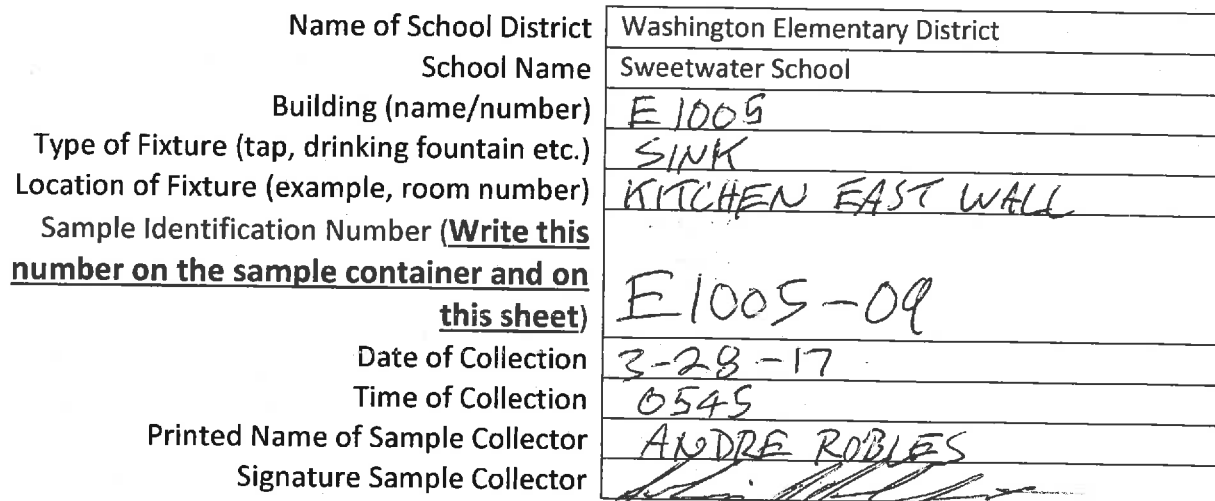 Name of School District Washington Elementary District
School Name Sweetwater School
Building (name/number) E1005
Type of Fixture (tap, drinking fountain etc.) SINK
Location of Fixture (example, room number) KITCHEN EAST WALL
Sample Identification Number (Write this
number on the sample container and on
this sheet) E1005-09
Date of Collection 3-28-17
Time of Collection 0545
Printed Name of Sample Collector ANDRE ROBLES
Signature Sample Collector